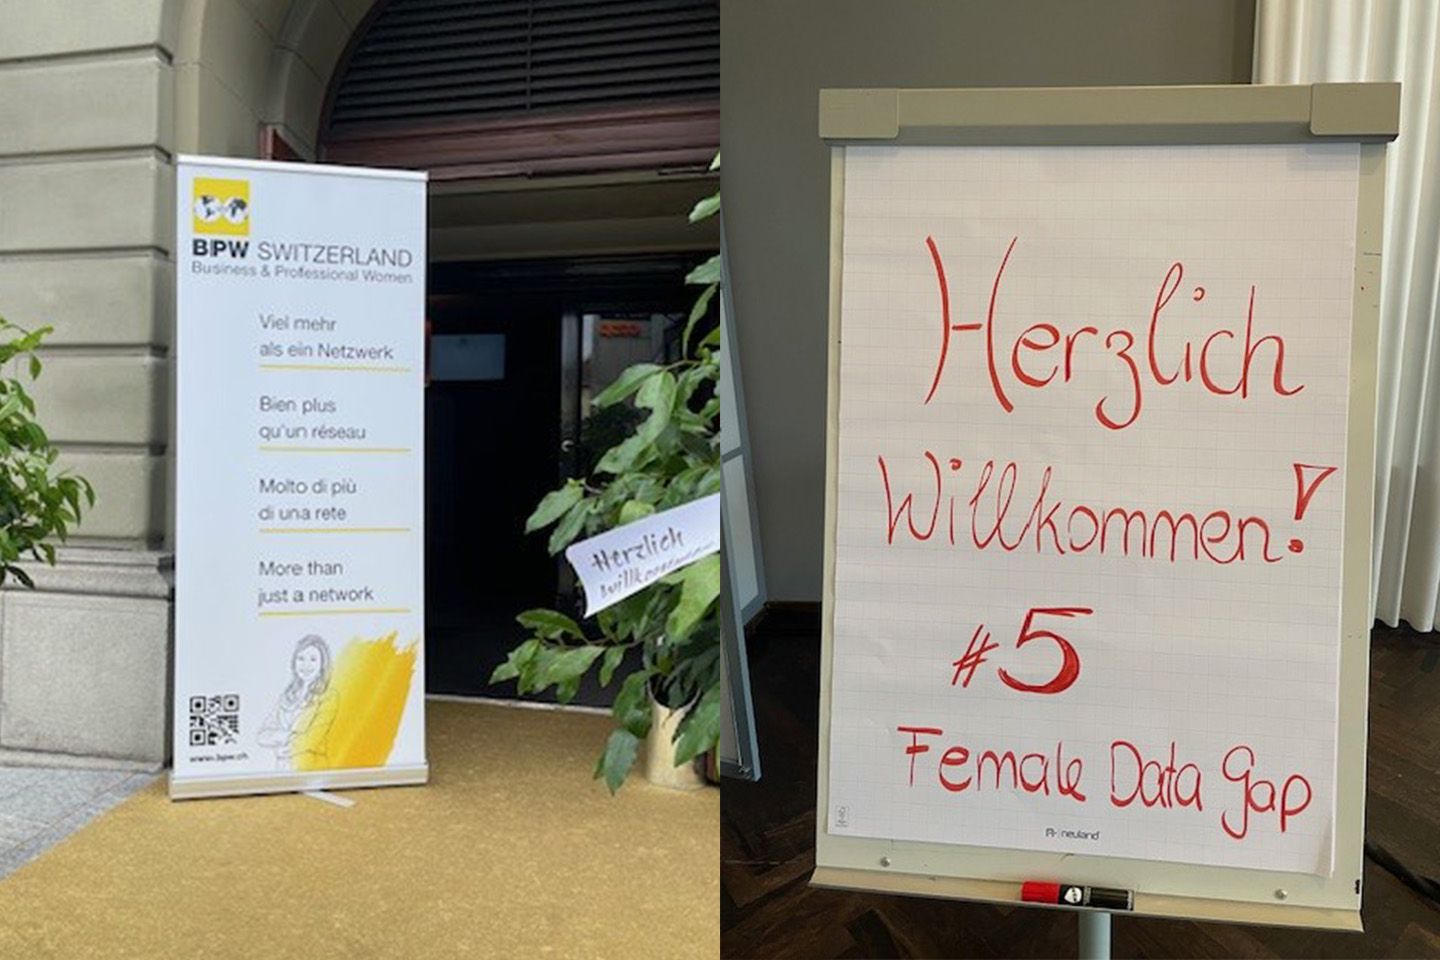 BPW SWITZERLAND
Business & Professional Women
Viel mehr
als ein Netzwerk
Bien plus
qu'un réseau
Molto di più
di una rete
More than
just a network
www.bpw.ch
Herzlich
willkommen
Herzlich
Willkommen!
#5
Female Data Gap
neuland